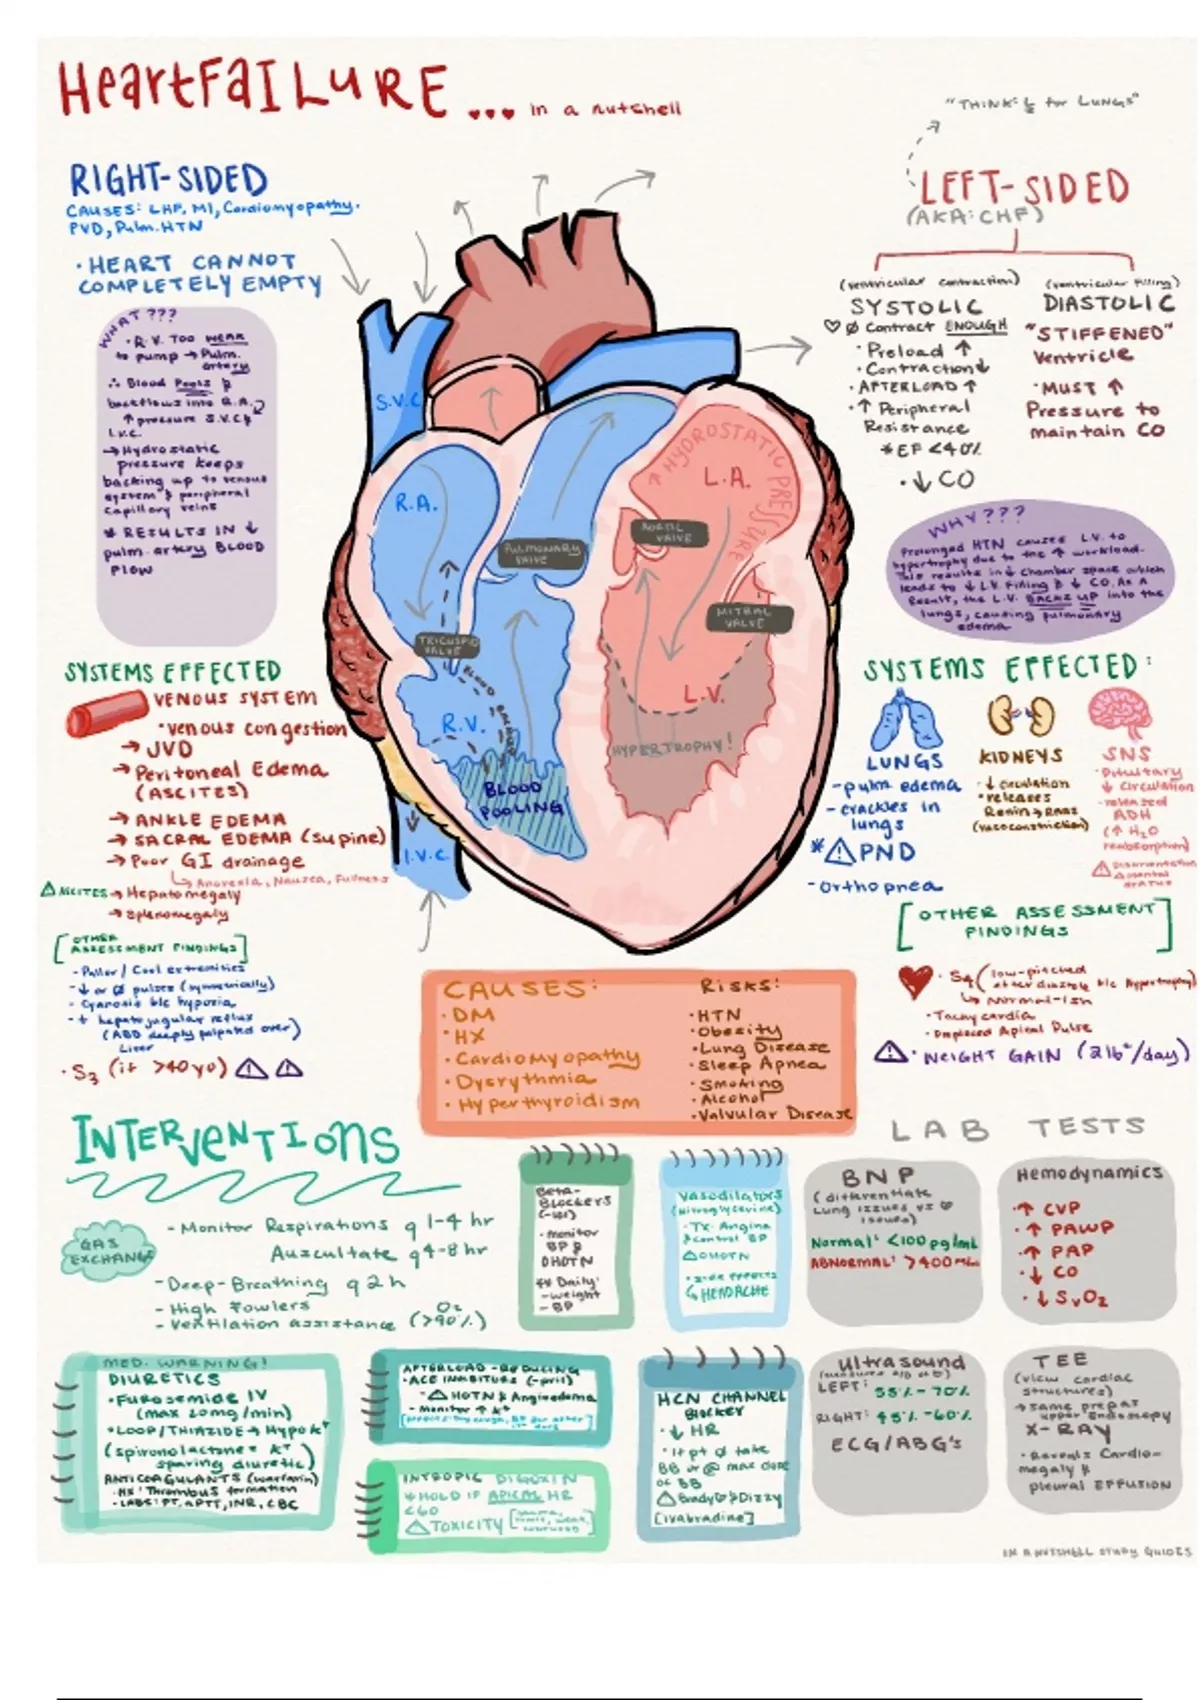 HeartFAILURE ... in a nutshell
"THINK: L for LUNGS"
RIGHT-SIDED
CAUSES: LHF, MI, Cardiomyopathy.
PVD, Pulm. HTN
• HEART CANNOT
COMPLETELY EMPTY
WHAT ???
• R.V. TOO WEAK
to pump → Pulm.
artery
∴ Blood Pools &
backflows into R.A.
↑ pressure S.V.C &
I.V.C.
→ Hydrostatic
pressure keeps
backing up to venous
system & peripheral
capillary veins
* RESULTS IN ↓
pulm. artery BLOOD
FLOW
LEFT-SIDED
(AKA: CHF)
(ventricular contraction)
SYSTOLIC
♡ Ø contract ENOUGH
• Preload ↑
• Contraction ↓
• AFTERLOAD ↑
• ↑ Peripheral
Resistance
* EF <40%
• ↓ CO
(ventricular filling)
DIASTOLIC
"STIFFENED"
Ventricle
• MUST ↑
Pressure to
maintain CO
WHY???
Prolonged HTN causes L.V. to
hypertrophy due to the ↑ workload.
This results in ↓ chamber space which
leads to ↓ L.V. Filling & ↓ CO. As a
Result, the L.V. BACKS UP into the
lungs, causing pulmonary
edema
S.V.C
R.A.
L.A.
↑ HYDROSTATIC PRESSURE
PULMONARY
VALVE
AORTIC
VALVE
TRICUSPID
VALVE
MITRAL
VALVE
R.V.
L.V.
BLOOD
HYPERTROPHY!
BLOOD
POOLING
I.V.C.
SYSTEMS EFFECTED
VENOUS SYSTEM
• venous congestion
→ JVD
→ Peritoneal Edema
(ASCITES)
→ ANKLE EDEMA
→ SACRAL EDEMA (supine)
→ Poor GI drainage
↳ Anorexia, Nausea, Fullness
⚠ ASCITES → Hepatomegaly
→ splenomegaly
[OTHER
ASSESSMENT FINDINGS]
- Pallor / Cool extremities
- ↓ or Ø pulses (symmetrically)
- Cyanosis b/c hypoxia
- + hepatojugular reflux
(ABD deeply palpated over)
Liver
• S3 (if >40 yo) ⚠ ⚠
SYSTEMS EFFECTED:
LUNGS
- pulm edema
- crackles in
lungs
* ⚠ PND
- Orthopnea
KIDNEYS
• ↓ circulation
• releases
Renin → RAAS
(vasoconstriction)
SNS
• Pituitary
↓ circulation
• released
ADH
(↑ H2O
reabsorption)
⚠ Disorientation
[OTHER ASSESSMENT
FINDINGS]
• S4 (low-pitched
after diastole b/c Hypertrophy)
↳ Normal-ish
• Tachycardia
• Displaced Apical Pulse
⚠ • WEIGHT GAIN (2lb+/day)
CAUSES:
• DM
• HX
• Cardiomyopathy
• Dysrythmia
• Hyperthyroidism
Risks:
• HTN
• Obesity
• Lung Disease
• Sleep Apnea
• Smoking
• Alcohol
• Valvular Disease
INTERVENTIONS
GAS
EXCHANGE
- Monitor Respirations q 1-4 hr
Auscultate q4-8 hr
- Deep-Breathing q 2 h
- High Fowlers
- Ventilation assistance (O2 >90%)
BETA-
BLOCKERS
(-lol)
• monitor
BP &
OHOTN
Daily:
- weight
- BP
Vasodilators
(nitroglycerine)
- Tx: Angina
& control BP
⚠ OHOTN
• side effects
↳ HEADACHE
LAB TESTS
BNP
(differentiate
Lung issues vs ♡
issues)
Normal: <100 pg/mL
ABNORMAL: >400
Hemodynamics
• ↑ CVP
• ↑ PAWP
• ↑ PAP
• ↓ CO
• ↓ SvO2
MED. WARNING!
DIURETICS
• Furosemide IV
(max 20mg/min)
• LOOP/THIAZIDE → Hypo K+
(spironolactone = K+
sparing diuretic)
ANTICOAGULANTS (warfarin)
• HX: Thrombus formation
• LABS: PT, aPTT, INR, CBC
AFTERLOAD-REDUCING
• ACE INHIBITORS (-pril)
- ⚠ HOTN & Angioedema
- Monitor ↑ K+
INTROPIC DIGOXIN
* HOLD IF APICAL HR
<60
⚠ TOXICITY
HCN CHANNEL
BLOCKER
• ↓ HR
• If pt Ø take
BB or @ max dose
of BB
⚠ Brady & Dizzy
[ivabradine]
Ultrasound
LEFT: 55% - 70%
RIGHT: 45% - 60%
ECG/ABG's
TEE
(view cardiac
structures)
→ same prep as
upper Endoscopy
X-RAY
• Reveals Cardio-
megaly &
pleural EFFUSION
IN A NUTSHELL STUDY GUIDES